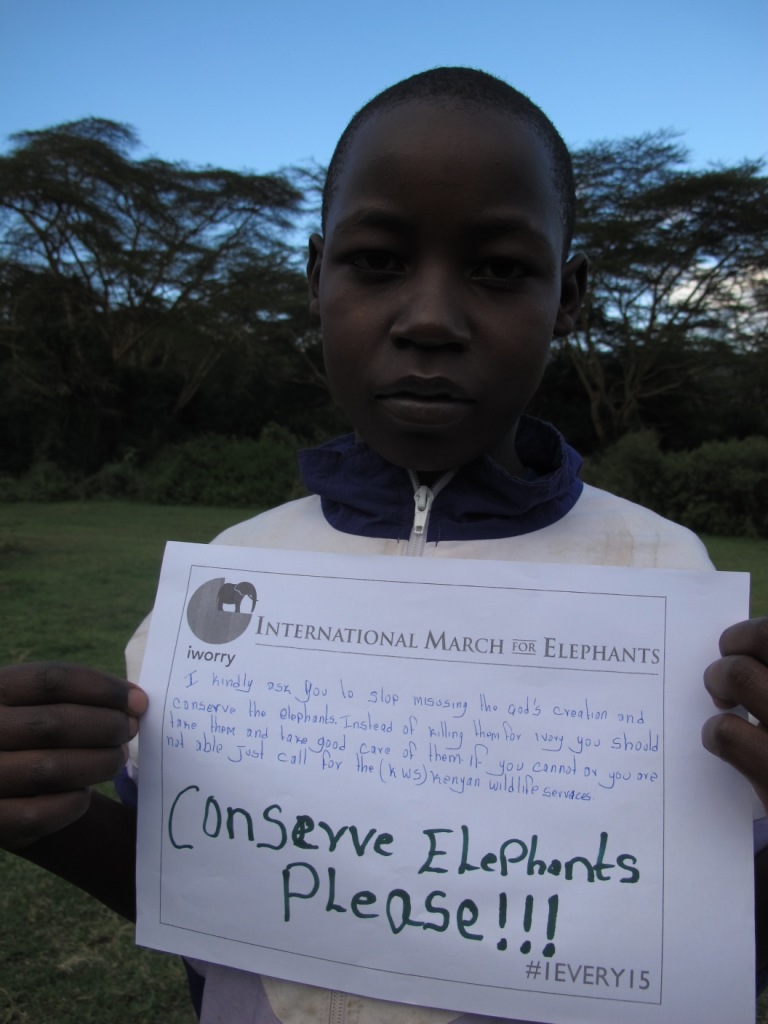 iworry
INTERNATIONAL MARCH FOR ELEPHANTS
I kindly ask you to stop misusing the God's creation and
conserve the elephants. Instead of killing them for ivory you should
take them and take good care of them if you cannot or you are
not able just call for the (KWS) Kenyan wildlife services
Conserve Elephants
Please!!!
#IEVERY15